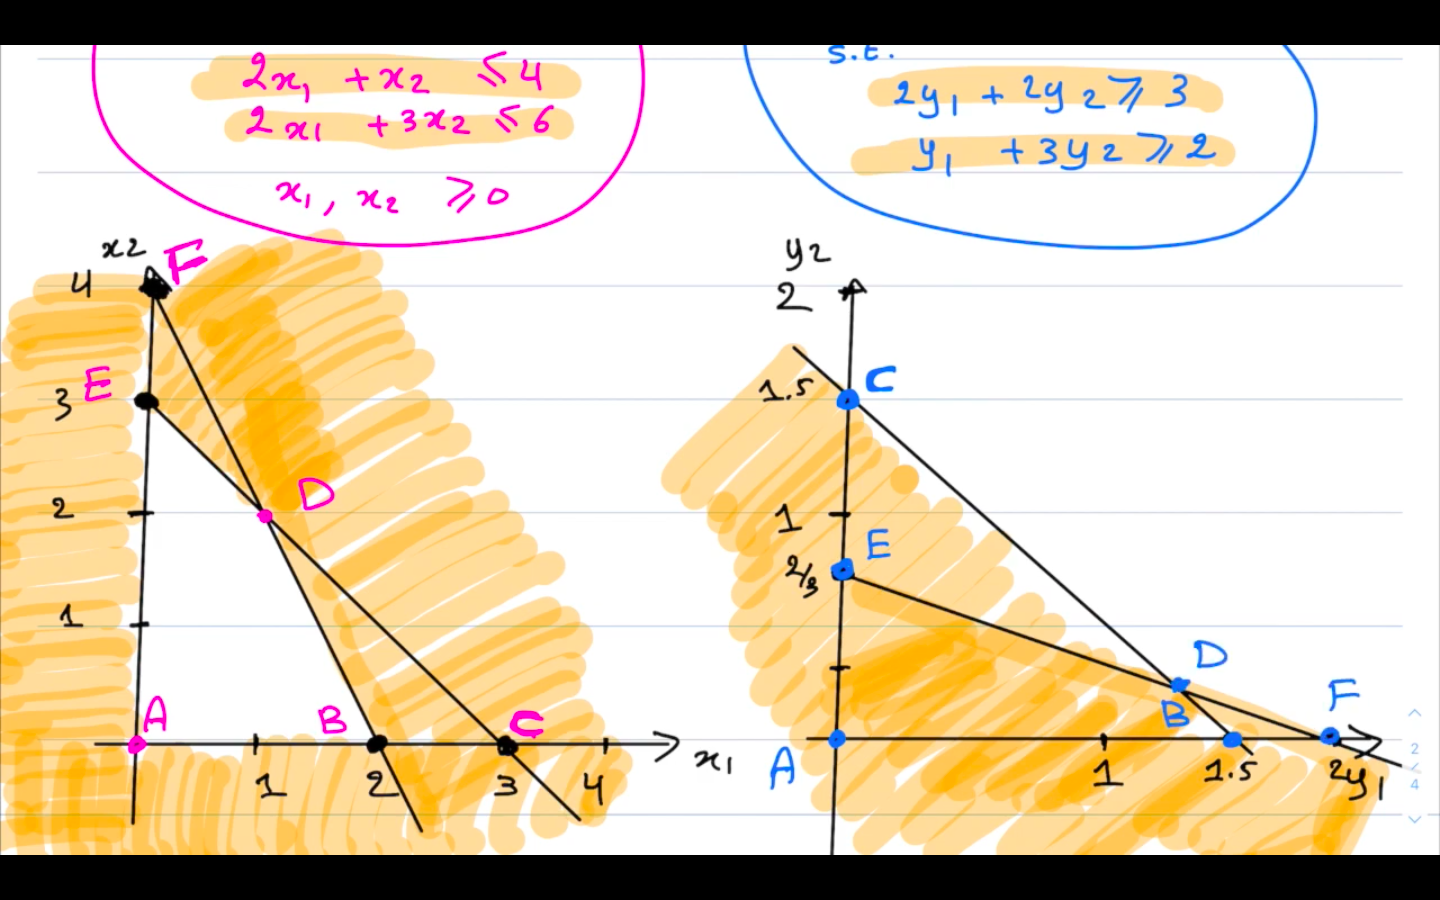 2x₁ + x₂ ≤ 4
2x₁ + 3x₂ ≤ 6
x₁, x₂ ≥ 0
S.E.
2y₁ + 2y₂ ≥ 3
y₁ + 3y₂ ≥ 2
x2
F
4
E
3
D
2
1
A
B
C
x₁
1
2
3
4
y₂
2
C
1.5
1
E
2/3
D
F
B
A
1
1.5
2
y₁
2
4